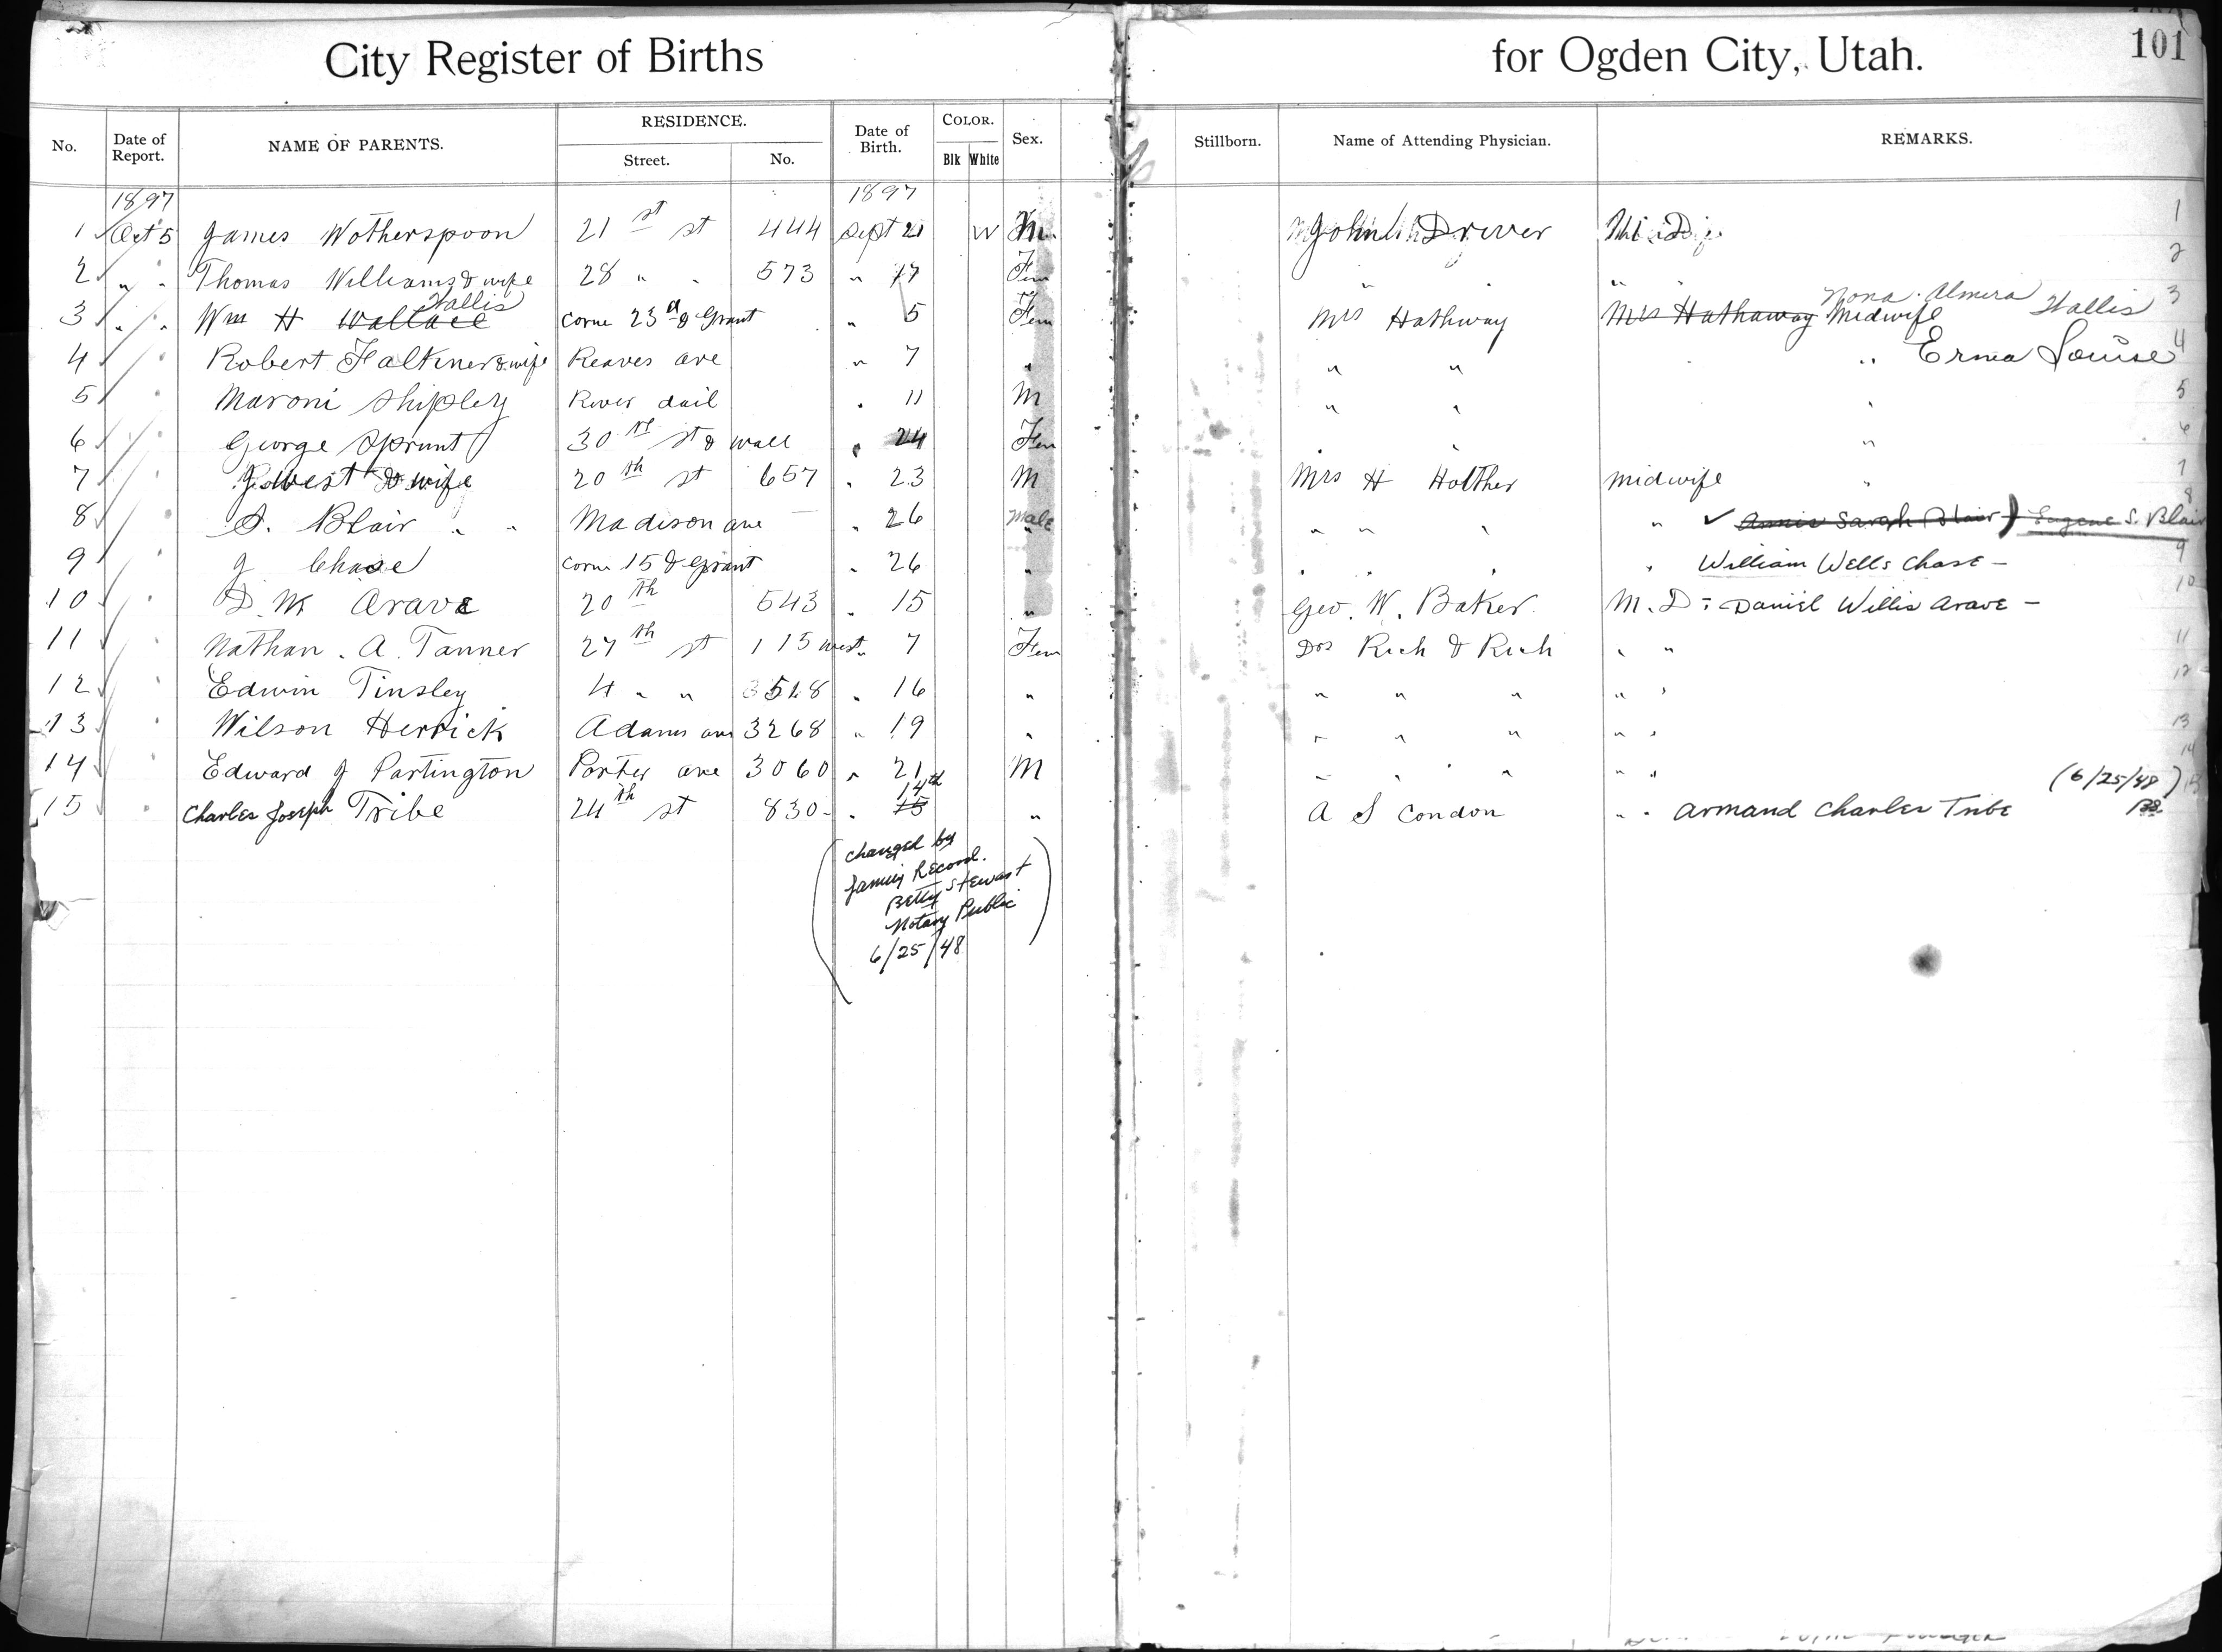 City Register of Births for Ogden City, Utah. 101
No. Date of Report. NAME OF PARENTS. RESIDENCE. Street. No. Date of Birth. COLOR. Blk White Sex. Stillborn. Name of Attending Physician. REMARKS.
1897 1897
1 Oct 5 James Wotherspoon 21st st 444 Sept 21 W M. John Driver M.D. 1
2 " " Thomas Williams & wife 28 " " 573 " 17 Fem " " " 2
Wallis Nona Almira Wallis
3 " " Wm H Wallace corne 23d & Grant " 5 Fem Mrs Hathway Mrs Hathaway Midwife 3
4 " Robert Falkner & wife Reaves ave " 7 " " " " Erma Louise 4
5 " Maroni Shipley River dail " 11 M " " " 5
6 " George Sprunt 30th st & wall " 24 Fem " " " 6
7 " West & wife 20th st 657 " 23 M Mrs H Holther midwife " 7
8 " S. Blair " " Madison ave " 26 Male " " " " ✓ Annie Sarah Blair) Eugene S. Blair 8
9 " J Chase corne 15 & Grant " 26 " " " " " William Wells Chase – 9
10 " D. W Arave 20th 543 " 15 " Geo. W. Baker M.D: Daniel Willis Arave – 10
11 " Nathan . A. Tanner 27th st 115 west " 7 Fem Drs Rich & Rich " " 11
12 " Edwin Tinsley 4 " " 3518 " 16 " " " " " " 12
13 " Wilson Herrick Adams ave 3268 " 19 " " " " " " 13
14 " Edward J Partington Porter ave 3060 " 21 M " " " " " " 14
14th (6/25/48)
15 " Charles Joseph Tribe 24th st 830- " 15 " A S Condon " " Armand Charles Tribe BS 15
(changed by
family Record.
Betty Stewart
Notary Public
6/25/48)